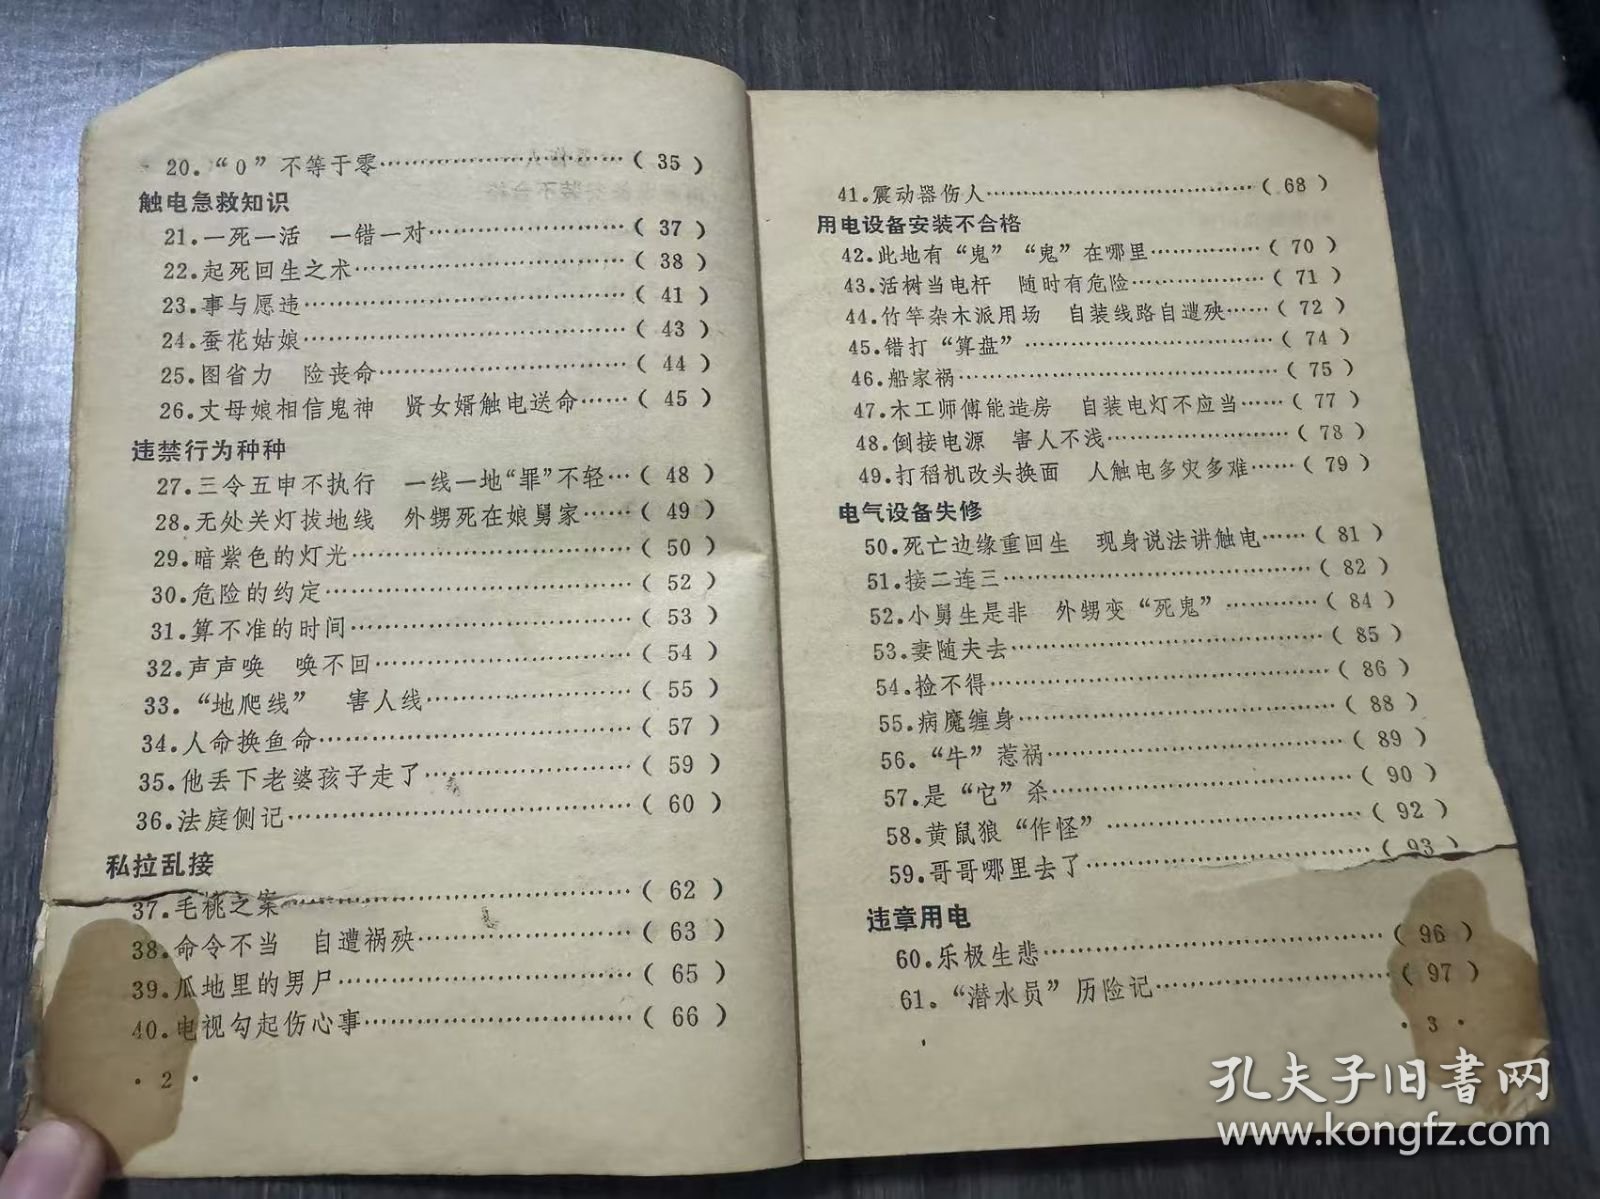 20.“0”不等于零……………………(35)
触电急救知识
21.一死一活 一错一对…………………(37)
22.起死回生之术…………………………(38)
23.事与愿违………………………………(41)
24.蚕花姑娘………………………………(43)
25.图省力 险丧命………………………(44)
26.丈母娘相信鬼神 贤女婿触电送命……(45)
违禁行为种种
27.三令五申不执行 一线一地“罪”不轻…(48)
28.无处关灯拔地线 外甥死在娘舅家……(49)
29.暗紫色的灯光…………………………(50)
30.危险的约定……………………………(52)
31.算不准的时间…………………………(53)
32.声声唤 唤不回………………………(54)
33.“地爬线” 害人线……………………(55)
34.人命换鱼命……………………………(57)
35.他丢下老婆孩子走了…………………(59)
36.法庭侧记………………………………(60)
私拉乱接
37.毛桃之案………………………………(62)
38.命令不当 自遭祸殃…………………(63)
39.瓜地里的男尸…………………………(65)
40.电视勾起伤心事………………………(66)
·2·
41.震动器伤人……………………………(68)
用电设备安装不合格
42.此地有“鬼” “鬼”在哪里……………(70)
43.活树当电杆 随时有危险……………(71)
44.竹竿杂木派用场 自装线路自遭殃……(72)
45.错打“算盘”…………………………(74)
46.船家祸…………………………………(75)
47.木工师傅能造房 自装电灯不应当……(77)
48.倒接电源 害人不浅…………………(78)
49.打稻机改头换面 人触电多灾多难……(79)
电气设备失修
50.死亡边缘重回生 现身说法讲触电……(81)
51.接二连三………………………………(82)
52.小舅生是非 外甥变“死鬼”…………(84)
53.妻随夫去………………………………(85)
54.捡不得…………………………………(86)
55.病魔缠身………………………………(88)
56.“牛”惹祸……………………………(89)
57.是“它”杀……………………………(90)
58.黄鼠狼“作怪”………………………(92)
59.哥哥哪里去了…………………………(93)
违章用电
60.乐极生悲………………………………(96)
61.“潜水员”历险记……………………(97)
·3·
孔夫子旧书网
www.kongfz.com